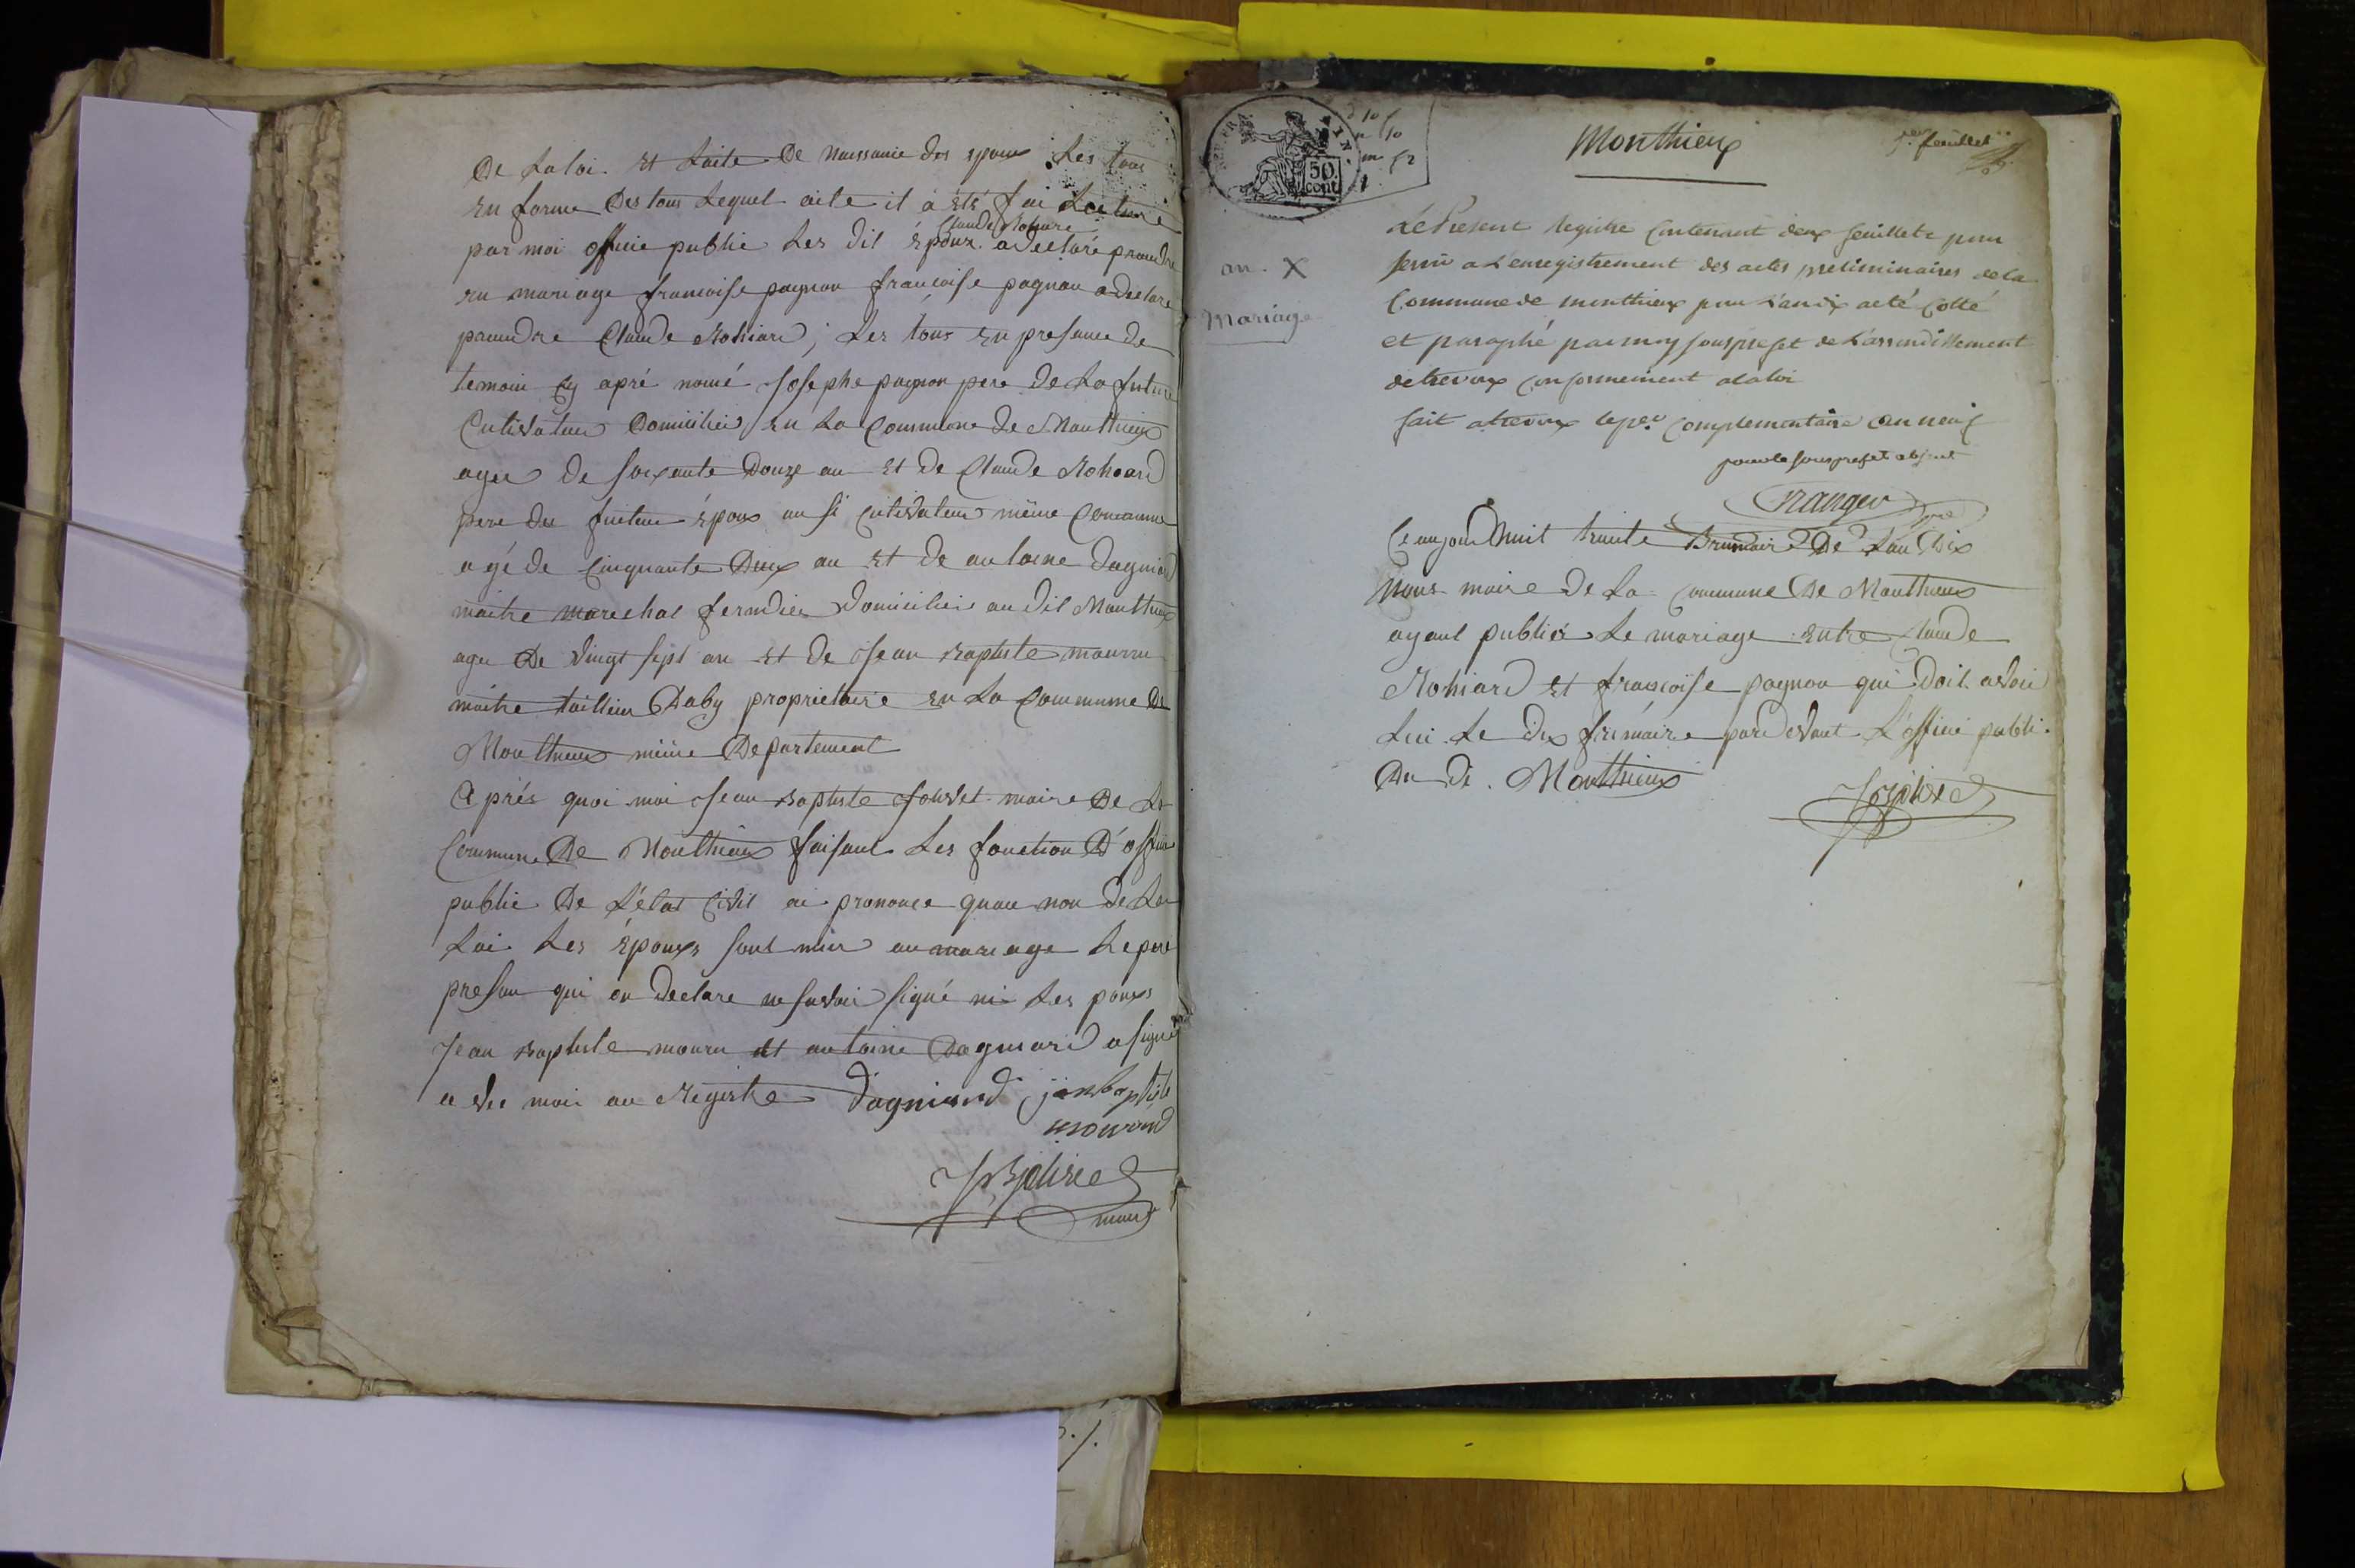 De La loi. Et L'aite De Naissanie des epoux Les tous
En forme Des tous Lequel aite il a Eté fai Lecture
Claude Rohiard
par moi officie public Les dit Epoux a declaré prandre
en mariage francoise pagnon francoise pagnon a declare
prandre Claude Rohiard ; Les tous En presance de
temoin cy apré nomé Josephe pagnon pere De La future
Cultivateur Domicilier En La Commune De Monthieux
agee De soixante Douze an Et De Claude Rohiard
pere du futeur Epoux au si cultivateur même Commune
agé de Cinquante Deux an Et de antoine Dagniard
maitre marechal ferandier Domicilier au dit Monthieux
agee De Vingt sept an Et de Jean Baptiste mouru
maitre taillieu D'aby proprietaire En La Commune De
Monthieux même Departement
Aprés quoi moi Jean Baptiste Jolivet maire De La
Commune De Monthieux faisant Les fonction D'officie
public De L'état Civil ai prononce quau nom De La
Loi Les Epouxs sont unis au mariage Le pere
presan qui on Declare ne savoir signé ni Les pouxs
Jean Baptiste mouru et antoine Dagniard a signé
a vec moi au Registre Dagniard jan baptiste
mourand
JB Jolivet
maire
50.
cent
an. X
Mariage
Monthieux
1er feuillet
Le Présent registre Contenant deux feuillets pour
servir a L'enregistrement des actes préliminaires de la
Commune de monthieux pour L'an dix a été Cotté
et paraphé par moy souspréfet de L'arrondissement
de trevoux Conformement a la loi
fait a trevoux le per complementaire an neuf
pour le souspréfet absent
Ce aujourdhuit trante Brumaire De L'an Dix
Nous maire De La Commune De Monthieux
ayant publiér Le mariage Entre Claude
Rohiard Et françoise pagnon qui doit avoir
Lui Le Dix frimaire pard evant L'officie publi.
Du di. Monthieux
JB Jolivet